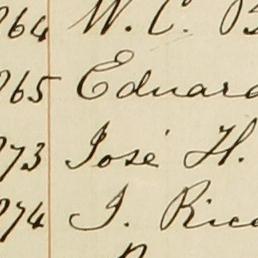 264 W. C. B
265 Eduard
273 José H.
274 J. Rica